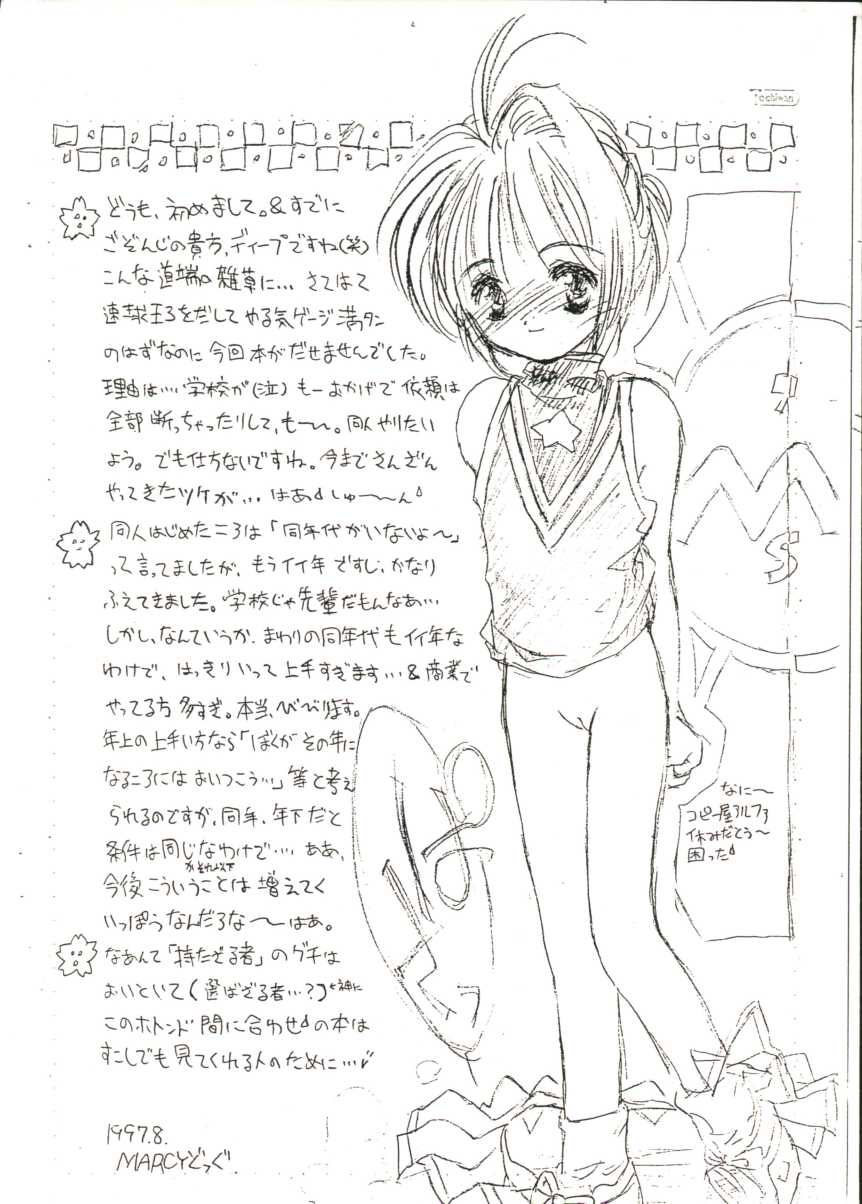 Tochiwan
どうも、初めまして。&すでに
ごぞんじの貴方、ディープですね(笑)
こんな道端の雑草に… さてはて
速球王ろをだして やる気ゲージ満タン
のはずなのに今回本がだせませんでした。
理由は…学校が(泣) もーおかげで依頼は
全部断っちゃったりして、も〜〜。同人やりたい
よう。でも仕方ないですね。今までさんざん
やってきたツケが… はあ しゅ〜〜ん
同人はじめたころは「同年代がいないよ〜」
って言ってましたが、もうイイ年ですし、かなり
ふえてきました。学校じゃ先輩だもんなあ…
しかし、なんていうか、まわりの同年代もイイ年な
わけで、はっきりいって上手すぎます…&商業で
やってる方多すぎ。本当、びびります。
年上の上手い方なら「ぼくがその年に
なるころにはおいつこう…」等と考え
られるのですが、同年、年下だと
条件は同じなわけで… ああ、
かそれ以下
今後こういうことは増えてく
いっぽうなんだろな〜はあ。
なあんて「持たざる者」のグチは
おいといて(選ばざる者…?)
神に
このホトンド間に合わせの本は
すこしでも見てくれる人のために…
1997.8.
MARCYどっぐ.
なに〜
コピー屋アルファ
休みだとう〜
困った
M
S